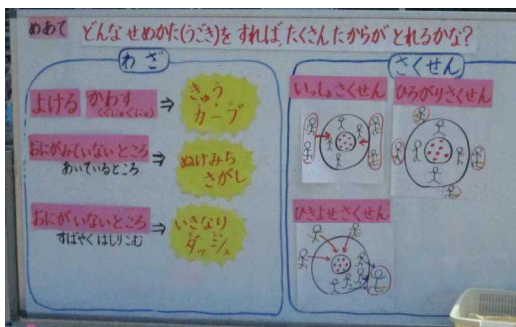 めあて どんなせめかた(うごき)をすれば,たくさんたからがとれるかな?
わざ
よける かわす ⇒ きゅう
(くにゃくにゃ) カーブ
おにがみていないところ ⇒ ぬけみち
あいているところ さがし
おにがいないところ ⇒ いきなり
すばやくはしりこむ ダッシュ
さくせん
いっしょさくせん ひろがりさくせん
ひきよせさくせん